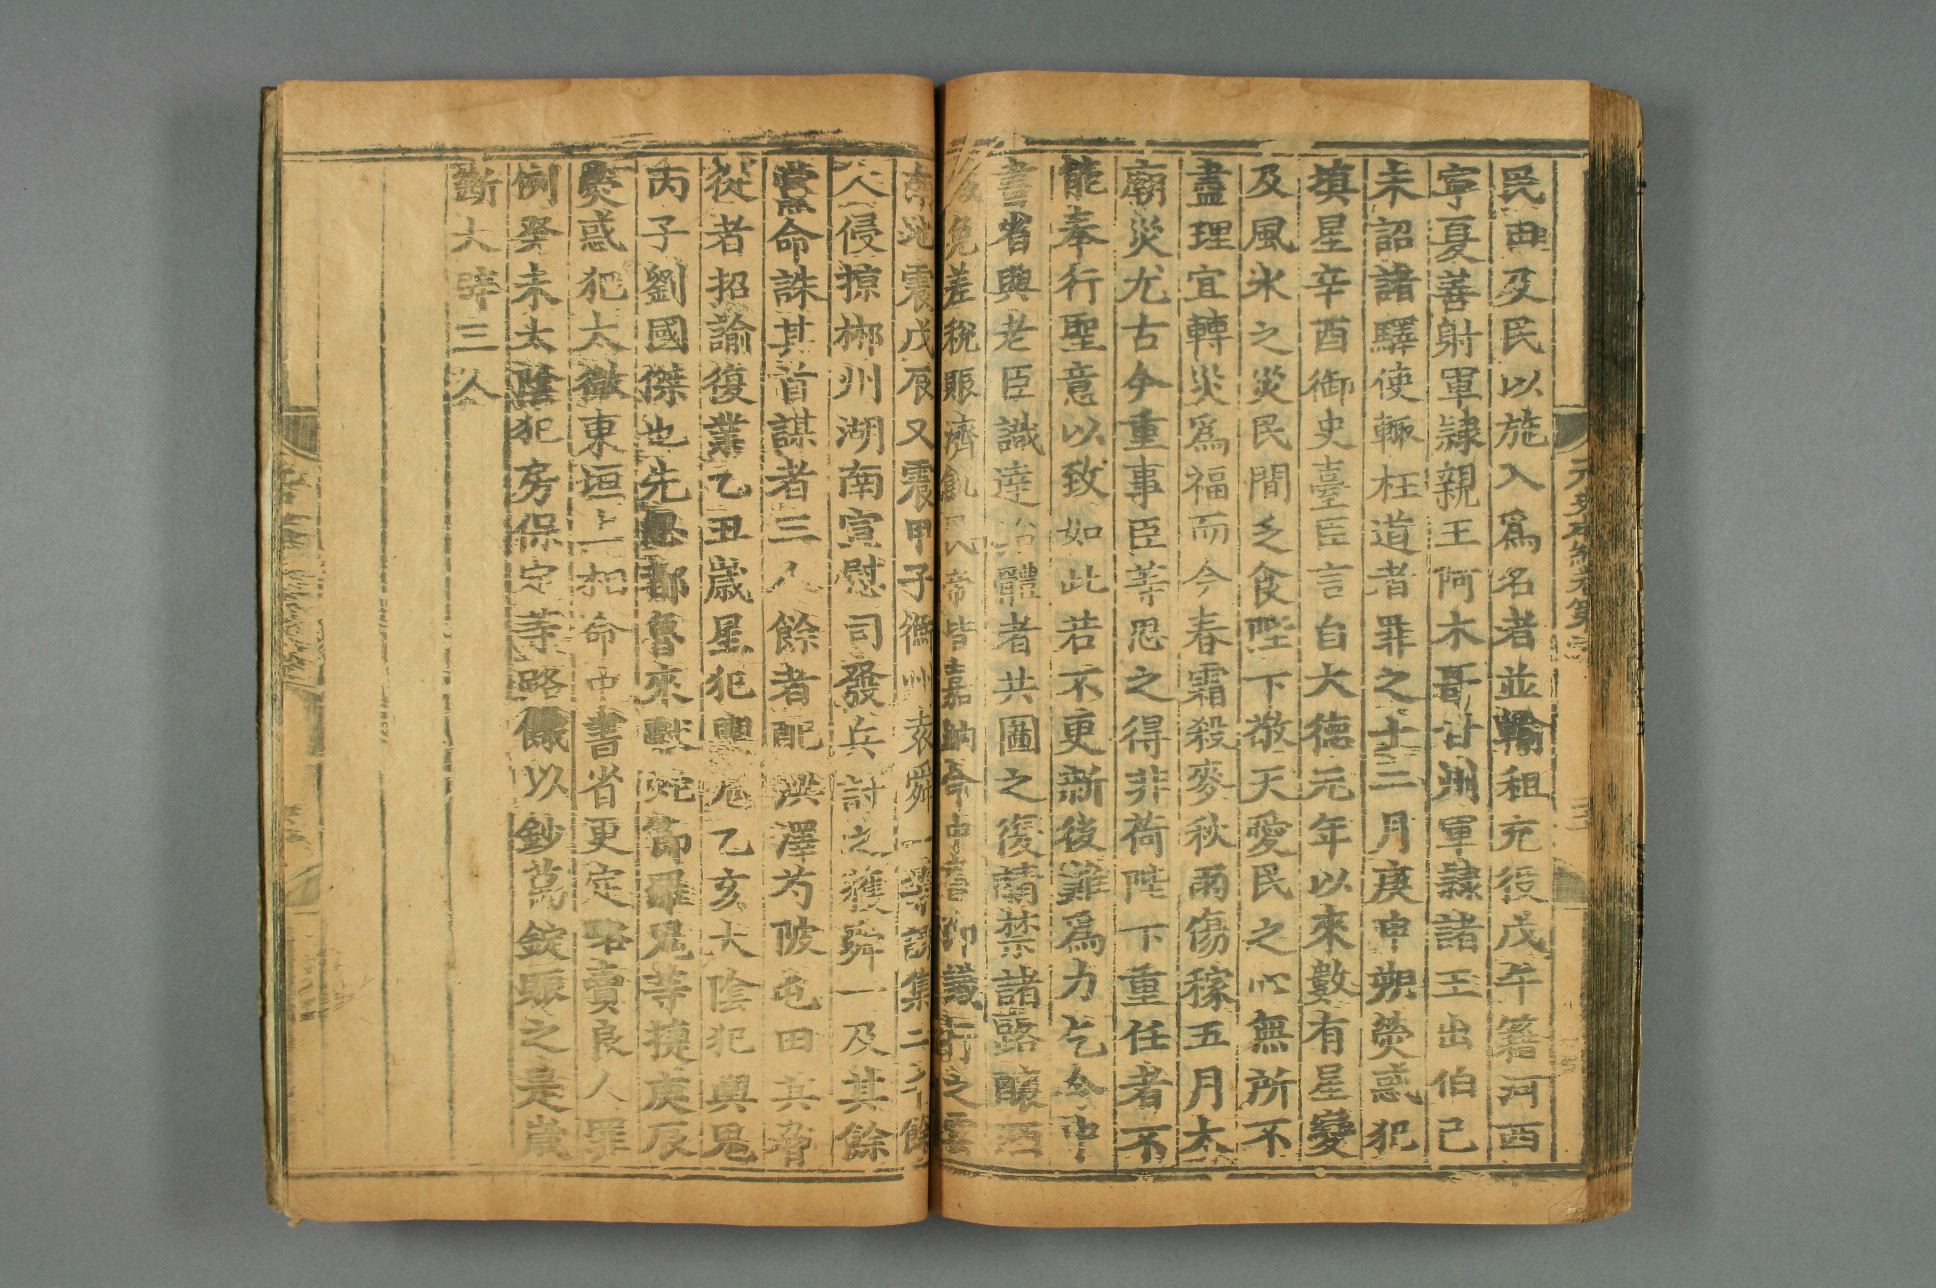 民田及民以施入爲名者並輸租充役戊午籍河西
寧夏善射軍隸親王阿木哥甘州軍隸諸王出伯己
未詔諸驛使輒枉道者罪之十二月庚申朔熒惑犯
塡星辛酉御史臺臣言自大德元年以來數有星變
及風水之災民間乏食陛下敬天愛民之心無所不
盡理宜轉災爲福而今春霜殺麥秋雨傷稼五月太
廟災尤古今重事臣等思之得非荷陛下重任者不
能奉行聖意以致如此若不更新後難爲力乞令中
書省與老臣識達治體者共圖之復請禁諸路釀酒
減免差稅賑濟飢民帝皆嘉納命中書卽議行之雲
南地震戊辰又震甲子衡州袁舜一等誘集二千餘
人侵掠郴州湖南宣慰司發兵討之獲舜一及其餘
黨命誅其首謀者三人餘者配洪澤芍陂屯田其脅
從者招諭復業乙丑歲星犯輿鬼乙亥太陰犯輿鬼
丙子劉國傑也先忽都魯來獻蛇節羅鬼等捷庚辰
熒惑犯太微東垣上相命中書省更定略賣良人罪
例癸未太陰犯房保定等路饑以鈔萬錠賑之是歲
斷大辟三人